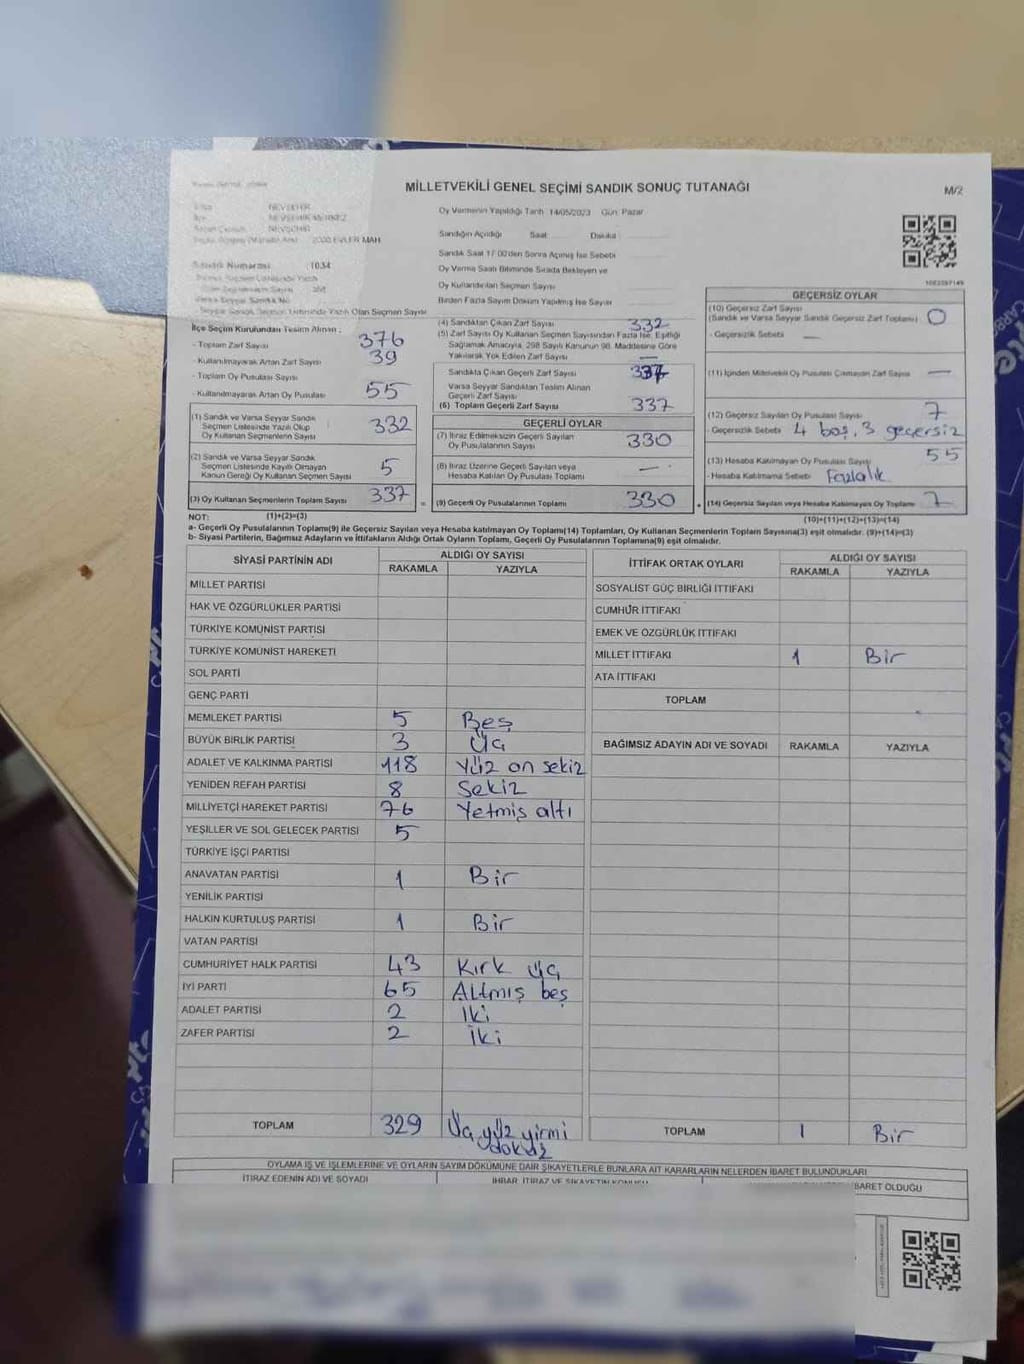 MİLLETVEKİLİ GENEL SEÇİMİ SANDIK SONUÇ TUTANAĞI
M/2
NEVŞEHİR
NEVŞEHİR MERKEZ
NEVŞEHİR
2000 EVLER MAH
Sandık Numarası 1034
Oy Vermenin Yapıldığı Tarih 14/05/2023 Gün: Pazar
Sandığın Açıldığı Saat Dakika
Sandık Saat 17:00'den Sonra Açılmış İse Sebebi
Oy Verme Saati Bitiminde Sırada Bekleyen ve
Oy Kullandırılan Seçmen Sayısı
Birden Fazla Sayım Döküm Yapılmış İse Sayısı
İlçe Seçim Kurulundan Teslim Alınan :
- Toplam Zarf Sayısı 376
- Kullanılmayarak Artan Zarf Sayısı 39
- Toplam Oy Pusulası Sayısı
- Kullanılmayarak Artan Oy Pusulası 55
(1) Sandık ve Varsa Seyyar Sandık
Seçmen Listesinde Yazılı Olup
Oy Kullanan Seçmenlerin Sayısı 332
(2) Sandık ve Varsa Seyyar Sandık
Seçmen Listesinde Kayıtlı Olmayan
Kanun Gereği Oy Kullanan Seçmen Sayısı 5
(3) Oy Kullanan Seçmenlerin Toplam Sayısı 337
(4) Sandıktan Çıkan Zarf Sayısı 332
(5) Zarf Sayısı Oy Kullanan Seçmen Sayısından Fazla İse, Eşitliği
Sağlamak Amacıyla, 298 Sayılı Kanunun 98. Maddesine Göre
Yakılarak Yok Edilen Zarf Sayısı —
Sandıkta Çıkan Geçerli Zarf Sayısı
Varsa Seyyar Sandıktan Teslim Alınan
Geçerli Zarf Sayısı
(6) Toplam Geçerli Zarf Sayısı 337
GEÇERLİ OYLAR
(7) İtiraz Edilmeksizin Geçerli Sayılan
Oy Pusulalarının Sayısı 330
(8) İtiraz Üzerine Geçerli Sayılan veya
Hesaba Katılan Oy Pusulası Toplamı —
= (9) Geçerli Oy Pusulalarının Toplamı 330
GEÇERSİZ OYLAR
(10) Geçersiz Zarf Sayısı
(Sandık ve Varsa Seyyar Sandık Geçersiz Zarf Toplamı) 0
- Geçersizlik Sebebi —
(11) İçinden Milletvekili Oy Pusulası Çıkmayan Zarf Sayısı —
(12) Geçersiz Sayılan Oy Pusulası Sayısı 7
- Geçersizlik Sebebi 4 boş, 3 geçersiz
(13) Hesaba Katılmayan Oy Pusulası Sayısı 55
- Hesaba Katılmama Sebebi Fazlalık
+ (14) Geçersiz Sayılan veya Hesaba Katılmayan Oy Toplamı 7
NOT: (1)+(2)=(3) (10)+(11)+(12)+(13)=(14)
a- Geçerli Oy Pusulalarının Toplamı(9) ile Geçersiz Sayılan veya Hesaba katılmayan Oy Toplamı(14) Toplamları, Oy Kullanan Seçmenlerin Toplam Sayısına(3) eşit olmalıdır. (9)+(14)=(3)
b- Siyasi Partilerin, Bağımsız Adayların ve İttifakların Aldığı Ortak Oyların Toplamı, Geçerli Oy Pusulalarının Toplamına(9) eşit olmalıdır.
SİYASİ PARTİNİN ADI ALDIĞI OY SAYISI
RAKAMLA YAZIYLA
MİLLET PARTİSİ
HAK VE ÖZGÜRLÜKLER PARTİSİ
TÜRKİYE KOMÜNİST PARTİSİ
TÜRKİYE KOMÜNİST HAREKETİ
SOL PARTİ
GENÇ PARTİ
MEMLEKET PARTİSİ 5 Beş
BÜYÜK BİRLİK PARTİSİ 3 Üç
ADALET VE KALKINMA PARTİSİ 118 Yüz on sekiz
YENİDEN REFAH PARTİSİ 8 Sekiz
MİLLİYETÇİ HAREKET PARTİSİ 76 Yetmiş altı
YEŞİLLER VE SOL GELECEK PARTİSİ 5
TÜRKİYE İŞÇİ PARTİSİ
ANAVATAN PARTİSİ 1 Bir
YENİLİK PARTİSİ
HALKIN KURTULUŞ PARTİSİ 1 Bir
VATAN PARTİSİ
CUMHURİYET HALK PARTİSİ 43 Kırk üç
İYİ PARTİ 65 Altmış beş
ADALET PARTİSİ 2 İki
ZAFER PARTİSİ 2 İki
TOPLAM 329 Üç yüz yirmi
dokuz
İTTİFAK ORTAK OYLARI ALDIĞI OY SAYISI
RAKAMLA YAZIYLA
SOSYALİST GÜÇ BİRLİĞİ İTTİFAKI
CUMHUR İTTİFAKI
EMEK VE ÖZGÜRLÜK İTTİFAKI
MİLLET İTTİFAKI 1 Bir
ATA İTTİFAKI
TOPLAM
BAĞIMSIZ ADAYIN ADI VE SOYADI RAKAMLA YAZIYLA
TOPLAM 1 Bir
OYLAMA İŞ VE İŞLEMLERİNE VE OYLARIN SAYIM DÖKÜMÜNE DAİR ŞİKAYETLERLE BUNLARA AİT KARARLARIN NELERDEN İBARET BULUNDUKLARI
İTİRAZ EDENİN ADI VE SOYADI İHBAR, İTİRAZ VE ŞİKAYETİN KONUSU İBARET OLDUĞU